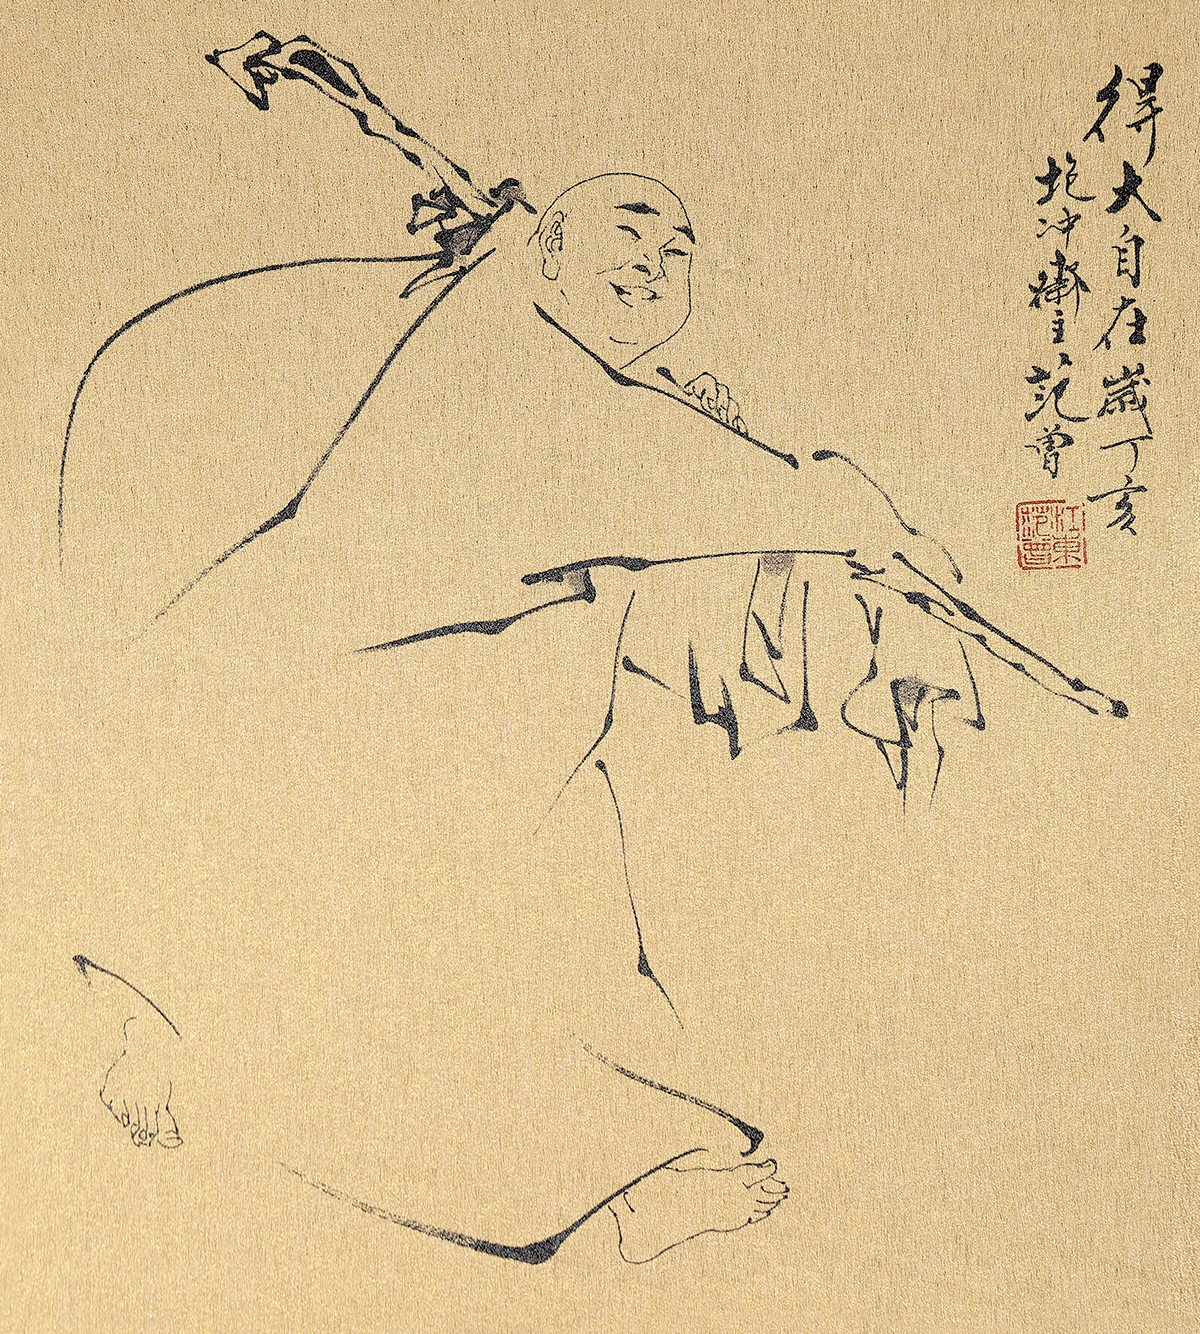 得大自在歲丁亥
抱冲齋主范曾
江東范曾